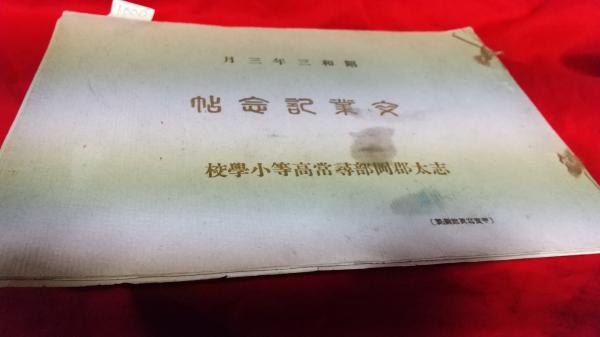 1600
昭和三年三月
卒業記念帖
志太郡岡部尋常高等小學校